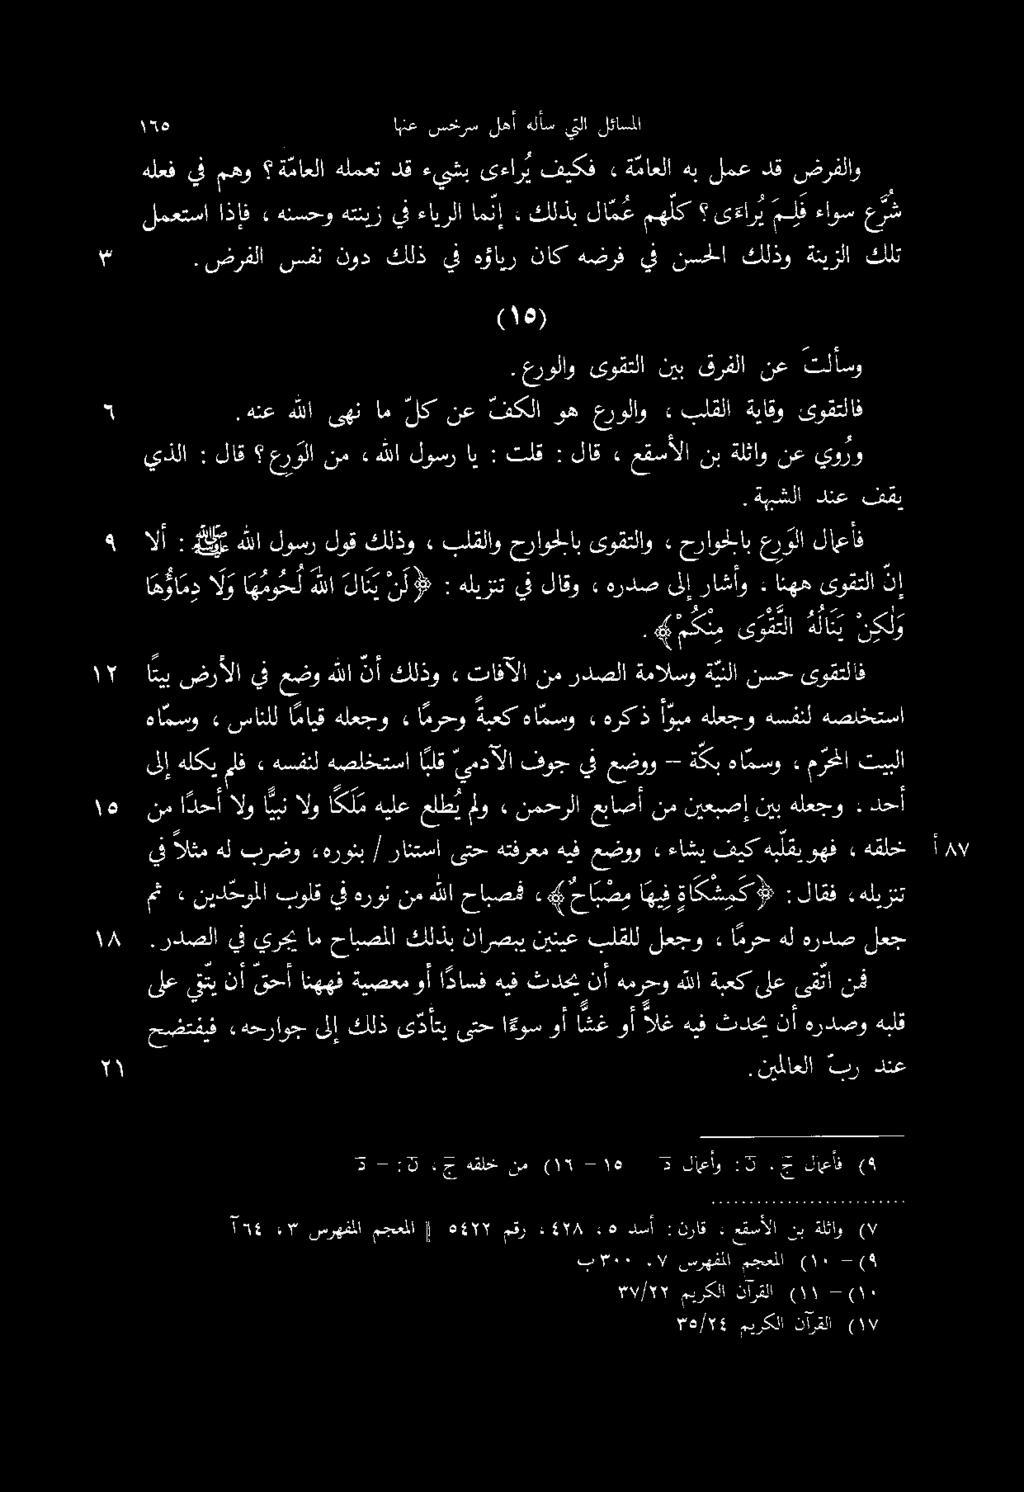 المسائل التي سأله أهل سرخس عنها ١٦٥
والفرض قد عمل به العامّة ، فكيف يُراءى بشيء قد تعمله العامّة ؟ وهم في فعله
شُرَّع سواء فَلِـمَ يُراءَى ؟ كلّهم عُمّال بذلك ، إنّما الرياء في زينته وحسنه ، فإذا استعمل
تلك الزينة وذلك الحسن في فرضه كان رياؤه في ذلك دون نفس الفرض . ٣
(١٥)
وسألتَ عن الفرق بين التقوى والورع .
فالتقوى وقاية القلب ، والورع هو الكفّ عن كلّ ما نهى الله عنه . ٦
ورُوي عن واثلة بن الأسقع ، قال : قلت : يا رسول الله ، من الوَرِع ؟ قال : الذي
يقف عند الشبهة .
فأعمال الوَرِع بالجوارح ، والتقوى بالجوارح والقلب ، وذلك قول رسول الله ﷺ : ألا ٩
إنّ التقوى ههنا . وأشار إلى صدره ، وقال في تنزيله : ﴿لَنْ يَنَالَ اللهَ لُحُومُهَا وَلَا دِمَاؤُهَا
وَلٰكِنْ يَنَالُهُ التَّقْوَى مِنْكُمْ﴾ .
فالتقوى حسن النيّة وسلامة الصدر من الآفات ، وذلك أنّ الله وضع في الأرض بيتًا ١٢
استخلصه لنفسه وجعله مبوّأ ذكره ، وسمّاه كعبةً وحرمًا ، وجعله قيامًا للناس ، وسمّاه
البيت المحرّم ، وسمّاه بكّة – ووضع في جوف الآدميّ قلبًا استخلصه لنفسه ، فلم يكله إلى
أحد . وجعله بين إصبعين من أصابع الرحمن ، ولم يُطلع عليه مَلَكًا ولا نبيًّا ولا أحدًا من ١٥
خلقه ، فهو يقلّبه كيف يشاء ، ووضع فيه معرفته حتى استنار / بنوره ، وضرب له مثلاً في ٨٧ أ
تنزيله ، فقال : ﴿كَمِشْكَاةٍ فِيهَا مِصْبَاحٌ﴾ ، فمصباح الله من نوره في قلوب الموحّدين ، ثم
جعل صدره له حرمًا ، وجعل للقلب عينين يبصران بذلك المصباح ما يجري في الصدر . ١٨
فمن اتّقى على كعبة الله وحرمه أن يحدث فيه فسادًا أو معصية فههنا أحقّ أن يتّقي على
قلبه وصدره أن يحدث فيه غلاًّ أو غشًّا أو سوءًا حتى يتأدّى ذلك إلى جوارحه ، فيفتضح
عند ربّ العالمين . ٢١
٩) فأعمال ج ، ن : وأعمال د ١٥ – ١٦) من خلقه ج ، ن : – د
٧) واثلة بن الأسقع ، قارن : أسد ٥ ، ٤٢٨ ، رقم ٥٤٢٢ || المعجم المفهرس ٣ ، ٦٤ آ
٩) – ١٠) المعجم المفهرس ٧ ، ٣٠٠ ب
١٠) – ١١) القرآن الكريم ٣٧/٢٢
١٧) القرآن الكريم ٣٥/٢٤